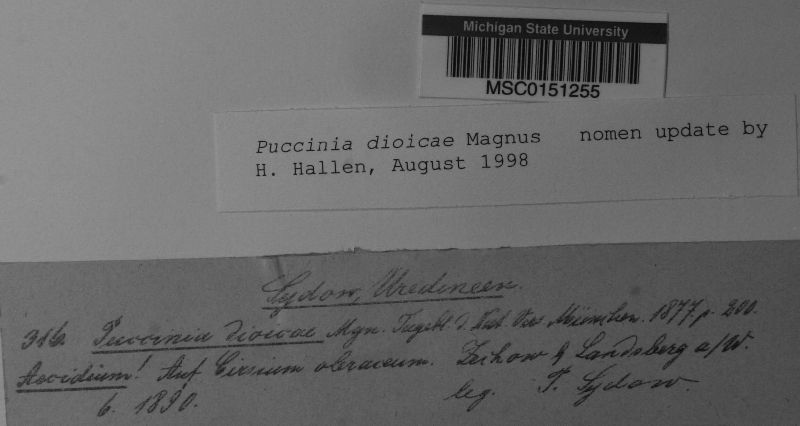 Michigan State University
MSC0151255
Puccinia dioicae Magnus nomen update by
H. Hallen, August 1998
Sydow, Uredineen.
316. Puccinia dioicae Mgn. Tagebl. d. Nat. Vers. München. 1877. p. 200.
Aecidium! Auf Cirsium oleraceum. Zechow b. Landsberg a/W.
6. 1890. leg. P. Sydow.